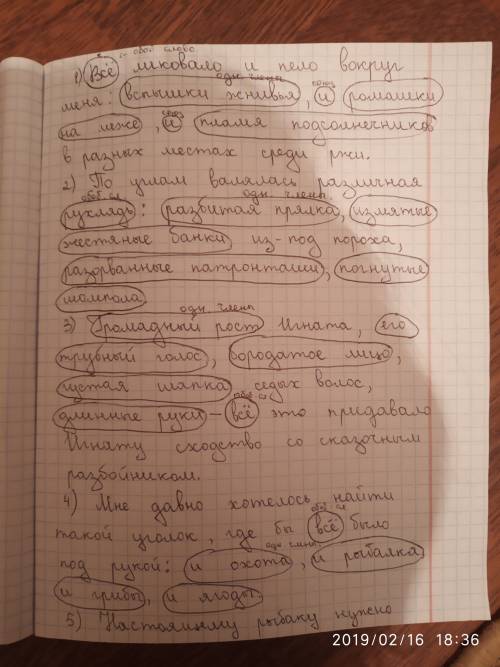 обоб слово
1) Всё ликовало и пело вокруг
одн. члены союз
меня: вспышки жнивья, и ромашки
союз
на меже, и пламя подсолнечников
в разных местах среди ржи.
2) По углам валялась различная
обоб. сл одн. члены
рухлядь: разбитая прялка, измятые
жестяные банки из-под пороха,
разорванные патронташи, погнутые
шомпола.
одн. члены
3) Громадный рост Игната, его
трубный голос, бородатое лицо,
густая шапка седых волос,
обоб. сл
длинные руки - всё это придавало
Игнату сходство со сказочным
разбойником.
4) Мне давно хотелось найти
обоб сл
такой уголок, где бы всё было
одн члены
под рукой: и охота, и рыбалка
и грибы, и ягоды.
5) Настоящему рыбаку нужно
2019/02/16 18:36